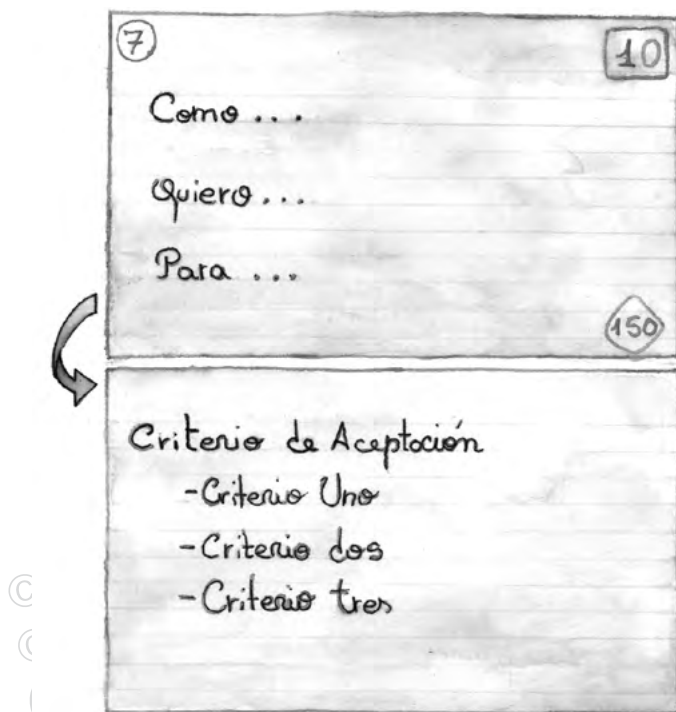 7
10
Como...
Quiero...
Para...
150
Criterio de Aceptación
-Criterio Uno
-Criterio dos
-Criterio tres